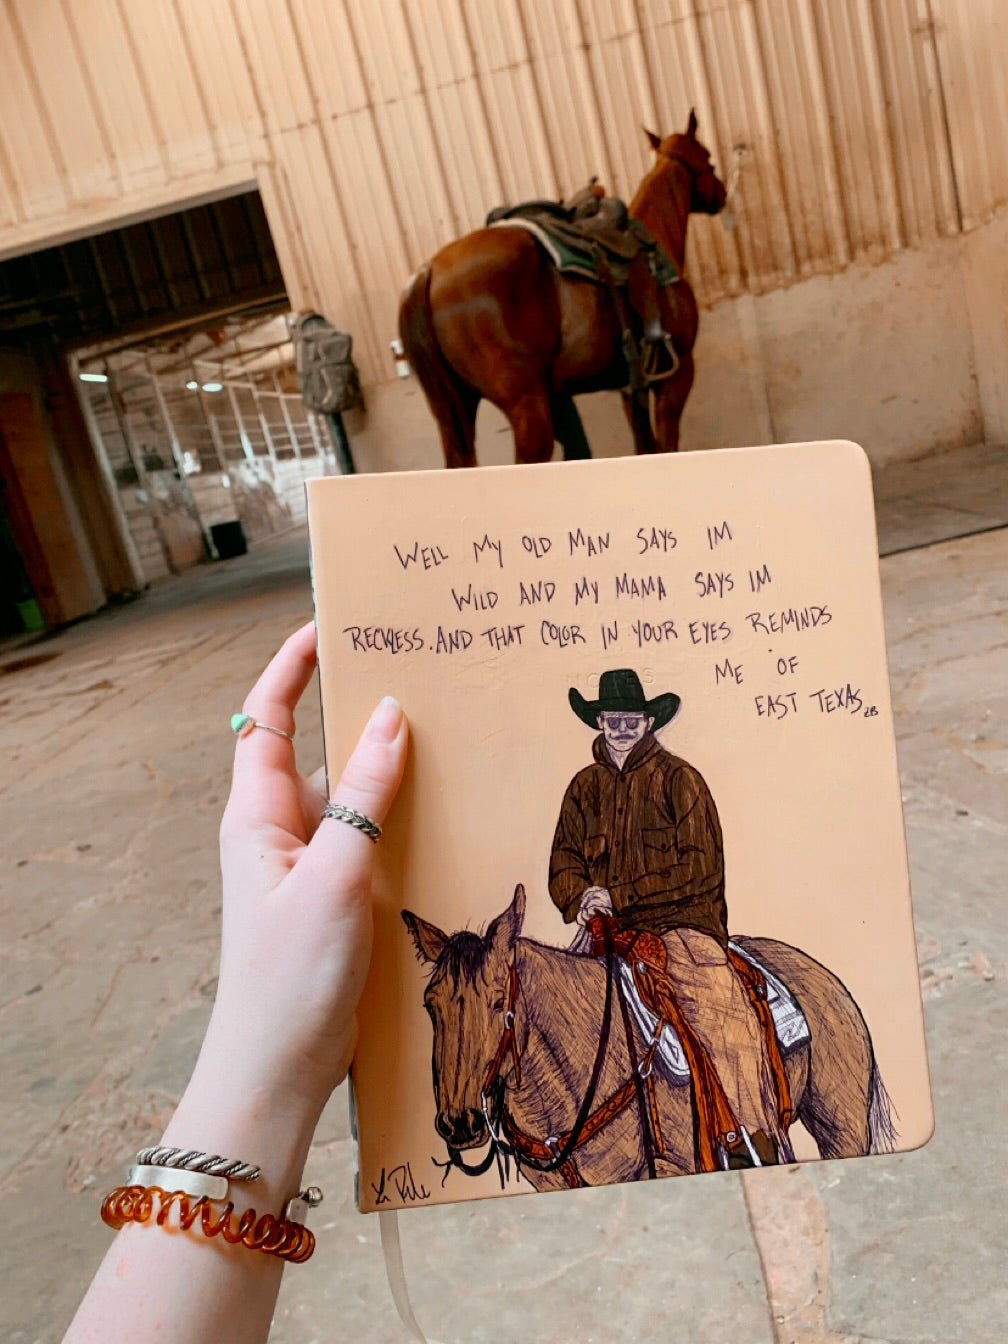 WELL MY OLD MAN SAYS IM
WILD AND MY MAMA SAYS IM
RECKLESS. AND THAT COLOR IN YOUR EYES REMINDS
ME OF
EAST TEXAS ZB
NOTES